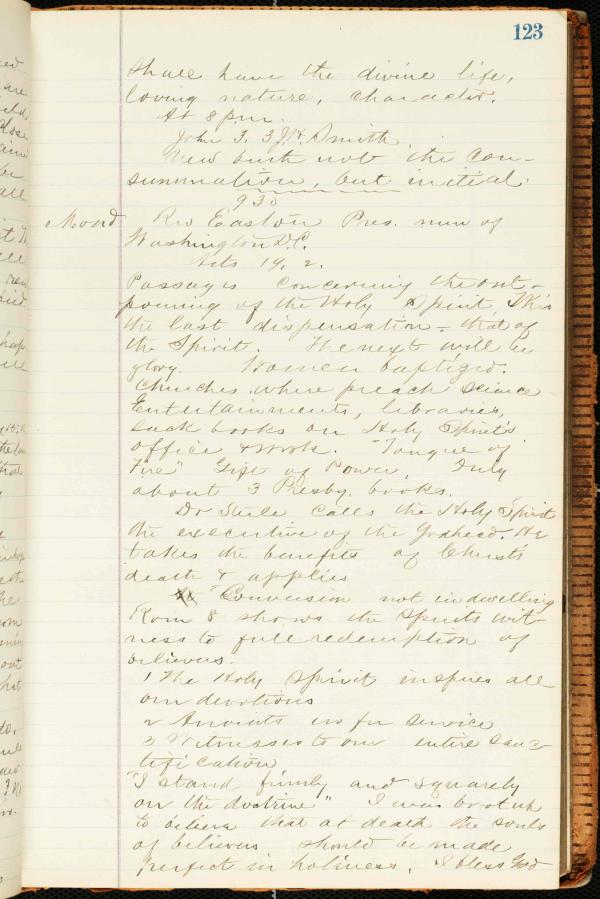 123
shall have the divine life,
loving nature, character.
At 8 p.m.
John 3, 3 J. H. Smith
New birth not the con-
summation, but initial.
9 30
Mond Rev Easton Pres. min of
Washington D.C.
Acts 19, 2.
Passages concerning the out-
pouring of the Holy Spirit. This
the last dispensation - that of
the Spirit. The next will be
glory. Women baptized.
Churches where preach science
Entertainments, libraries,
lack books on Holy Spirit's
office & work. "Tongue of
Fire" Gift of Power. Only
about 3 Presby. books.
Dr Steele calls the Holy Spirit
the executive of the Godhead. He
takes the benefits of Christ's
death & applies
Conversion not indwelling
Rom 8 shows the Spirits wit-
ness to full redemption of
believers.
1 The Holy Spirit inspires all
our devotions
2 Anoints us for service
3 Witnesses to our entire sanc-
tification
"I stand firmly and squarely
on the doctrine" I was brot up
to believe that at death the souls
of believers should be made
perfect in holiness. I bless God